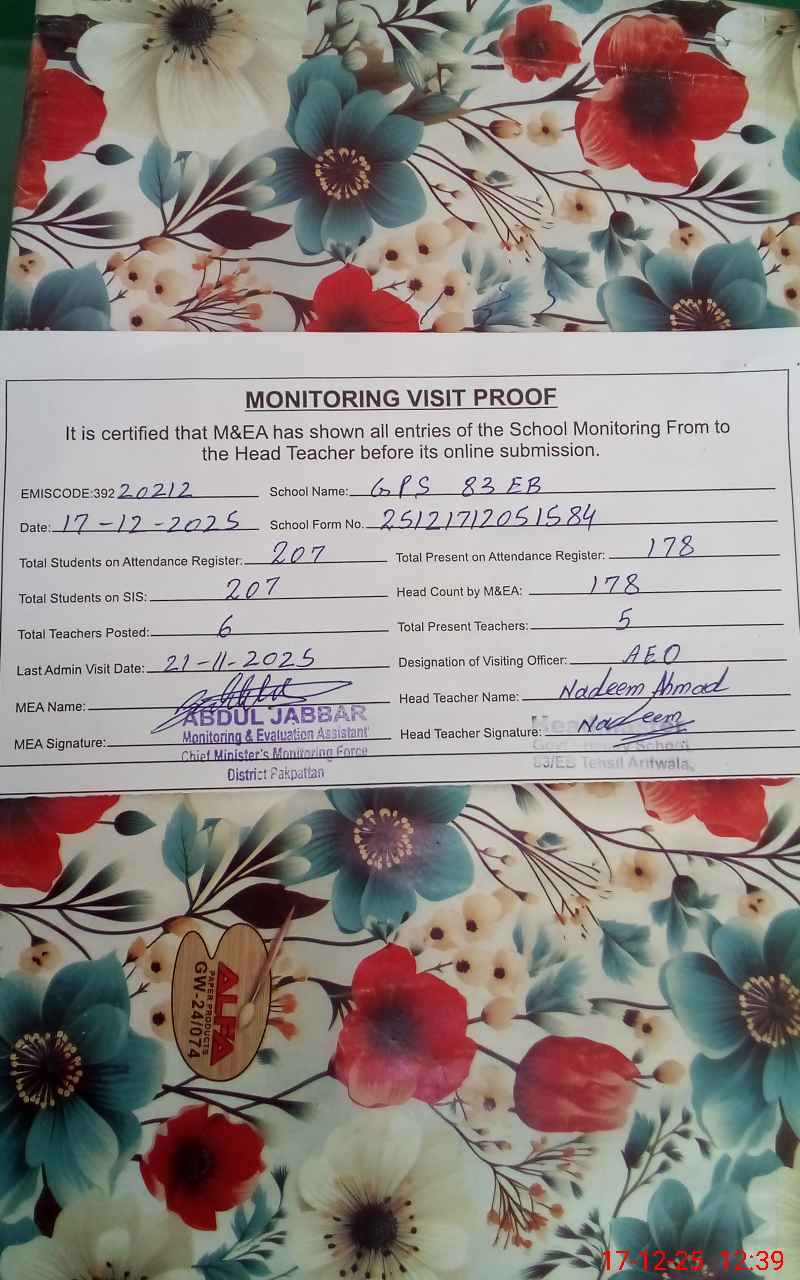 MONITORING VISIT PROOF
It is certified that M&EA has shown all entries of the School Monitoring From to
the Head Teacher before its online submission.
EMISCODE:392 20212 School Name: GPS 83 EB
Date: 17-12-2025 School Form No. 25121712051584
Total Students on Attendance Register: 207 Total Present on Attendance Register: 178
Total Students on SIS: 207 Head Count by M&EA: 178
Total Teachers Posted: 6 Total Present Teachers: 5
Last Admin Visit Date: 21-11-2025 Designation of Visiting Officer: AEO
MEA Name: Head Teacher Name: Nadeem Ahmad
ABDUL JABBAR
MEA Signature: Head Teacher Signature: Nadeem
Monitoring & Evaluation Assistant
Chief Minister's Monitoring Force School
District Pakpattan 83/EB Tehsil Arifwala.
ALFA
PAPER PRODUCTS
GW-24/074
17-12-25 12:39